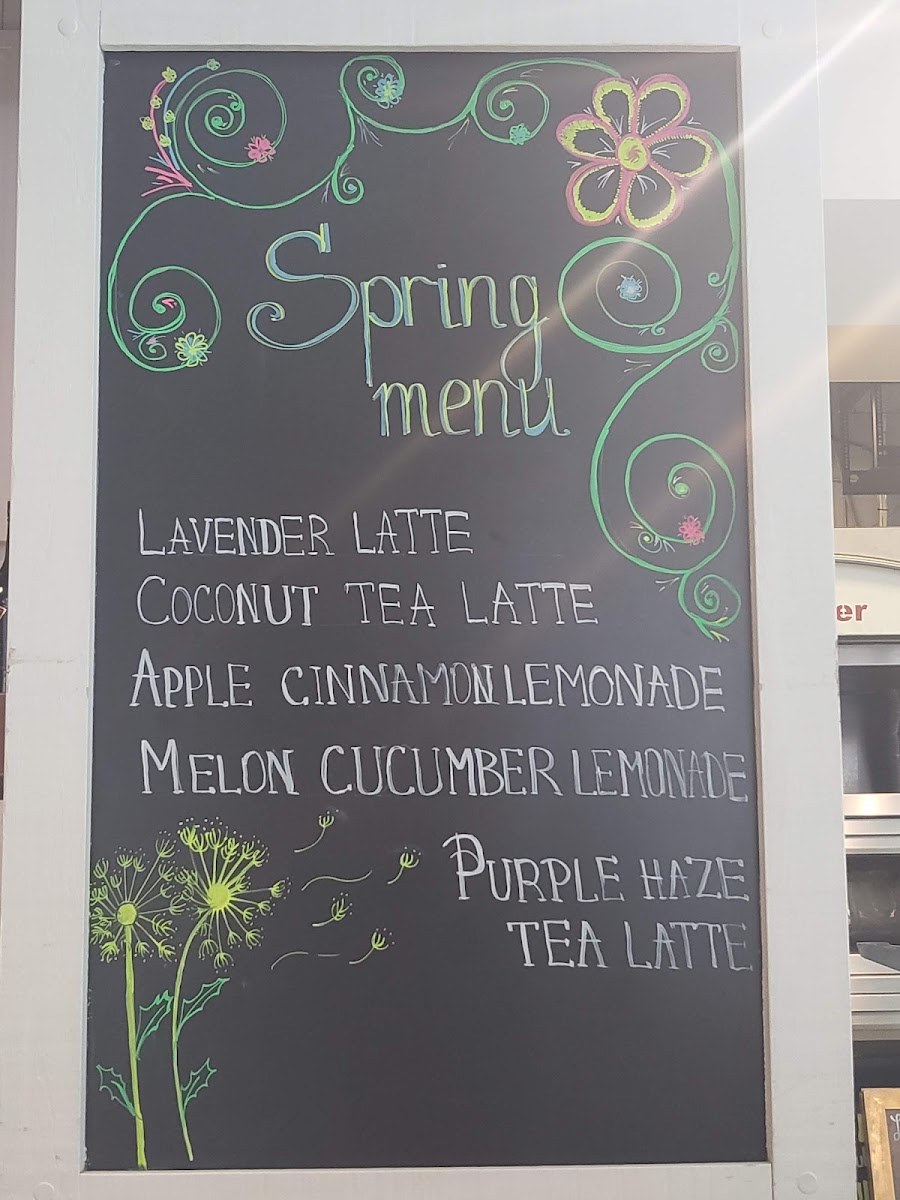 Spring
menu
LAVENDER LATTE
COCONUT TEA LATTE
APPLE CINNAMON LEMONADE
MELON CUCUMBER LEMONADE
PURPLE HAZE
TEA LATTE
er